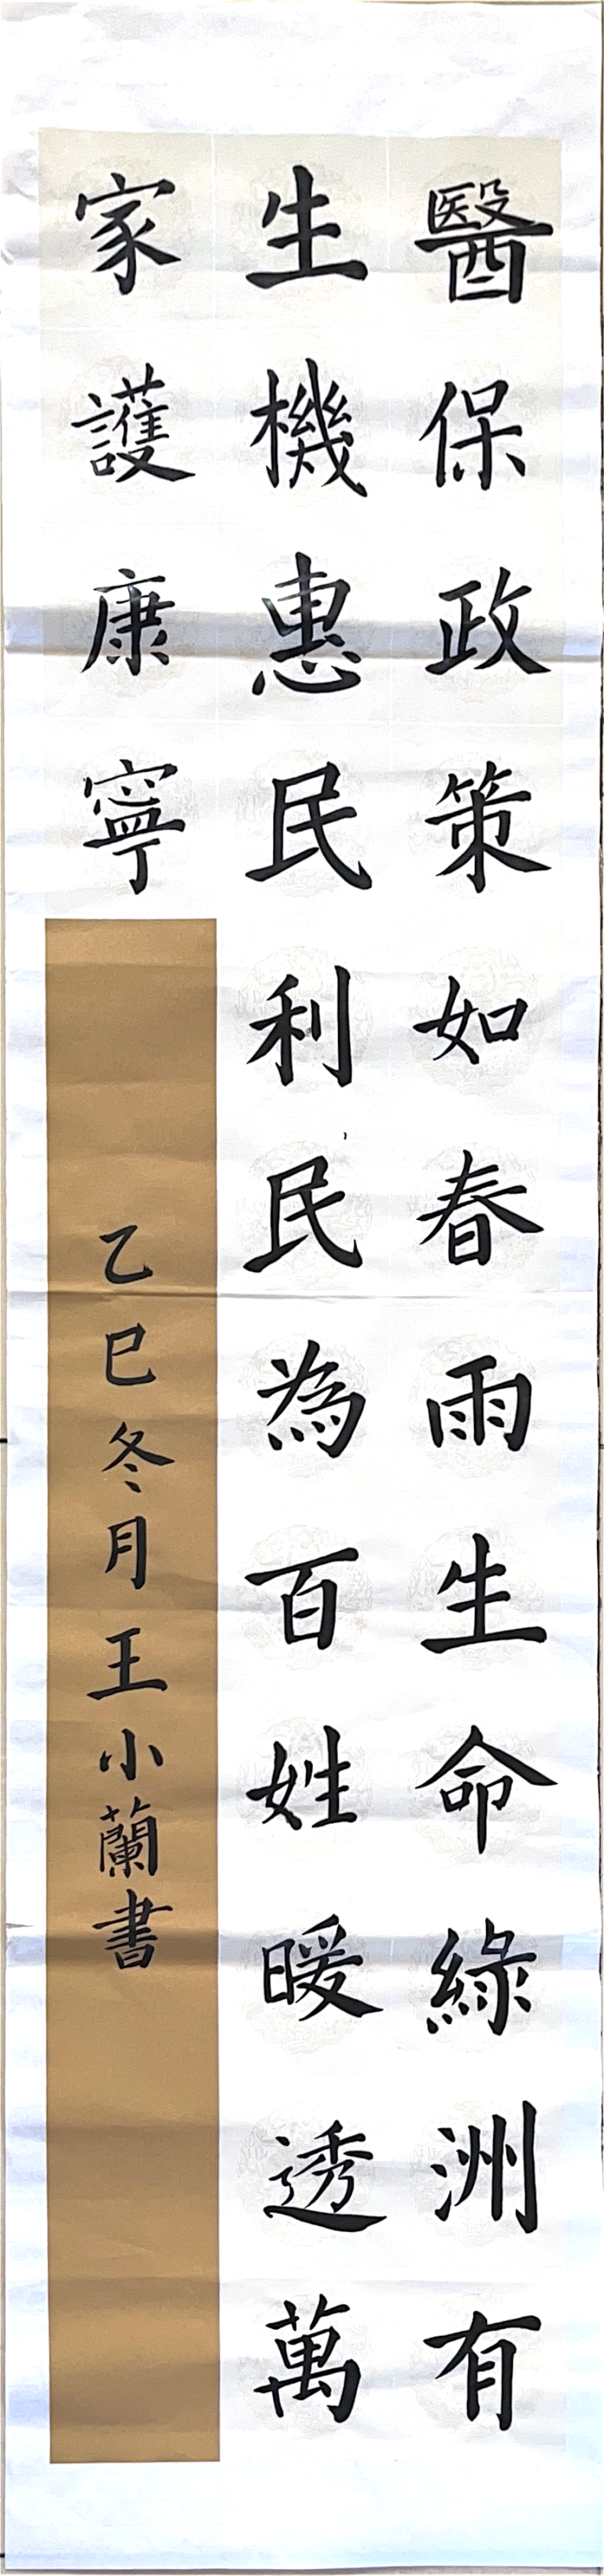 醫保政策如春雨生命綠洲有
生機惠民利民為百姓暖透萬
家護康寧
乙巳冬月王小蘭書